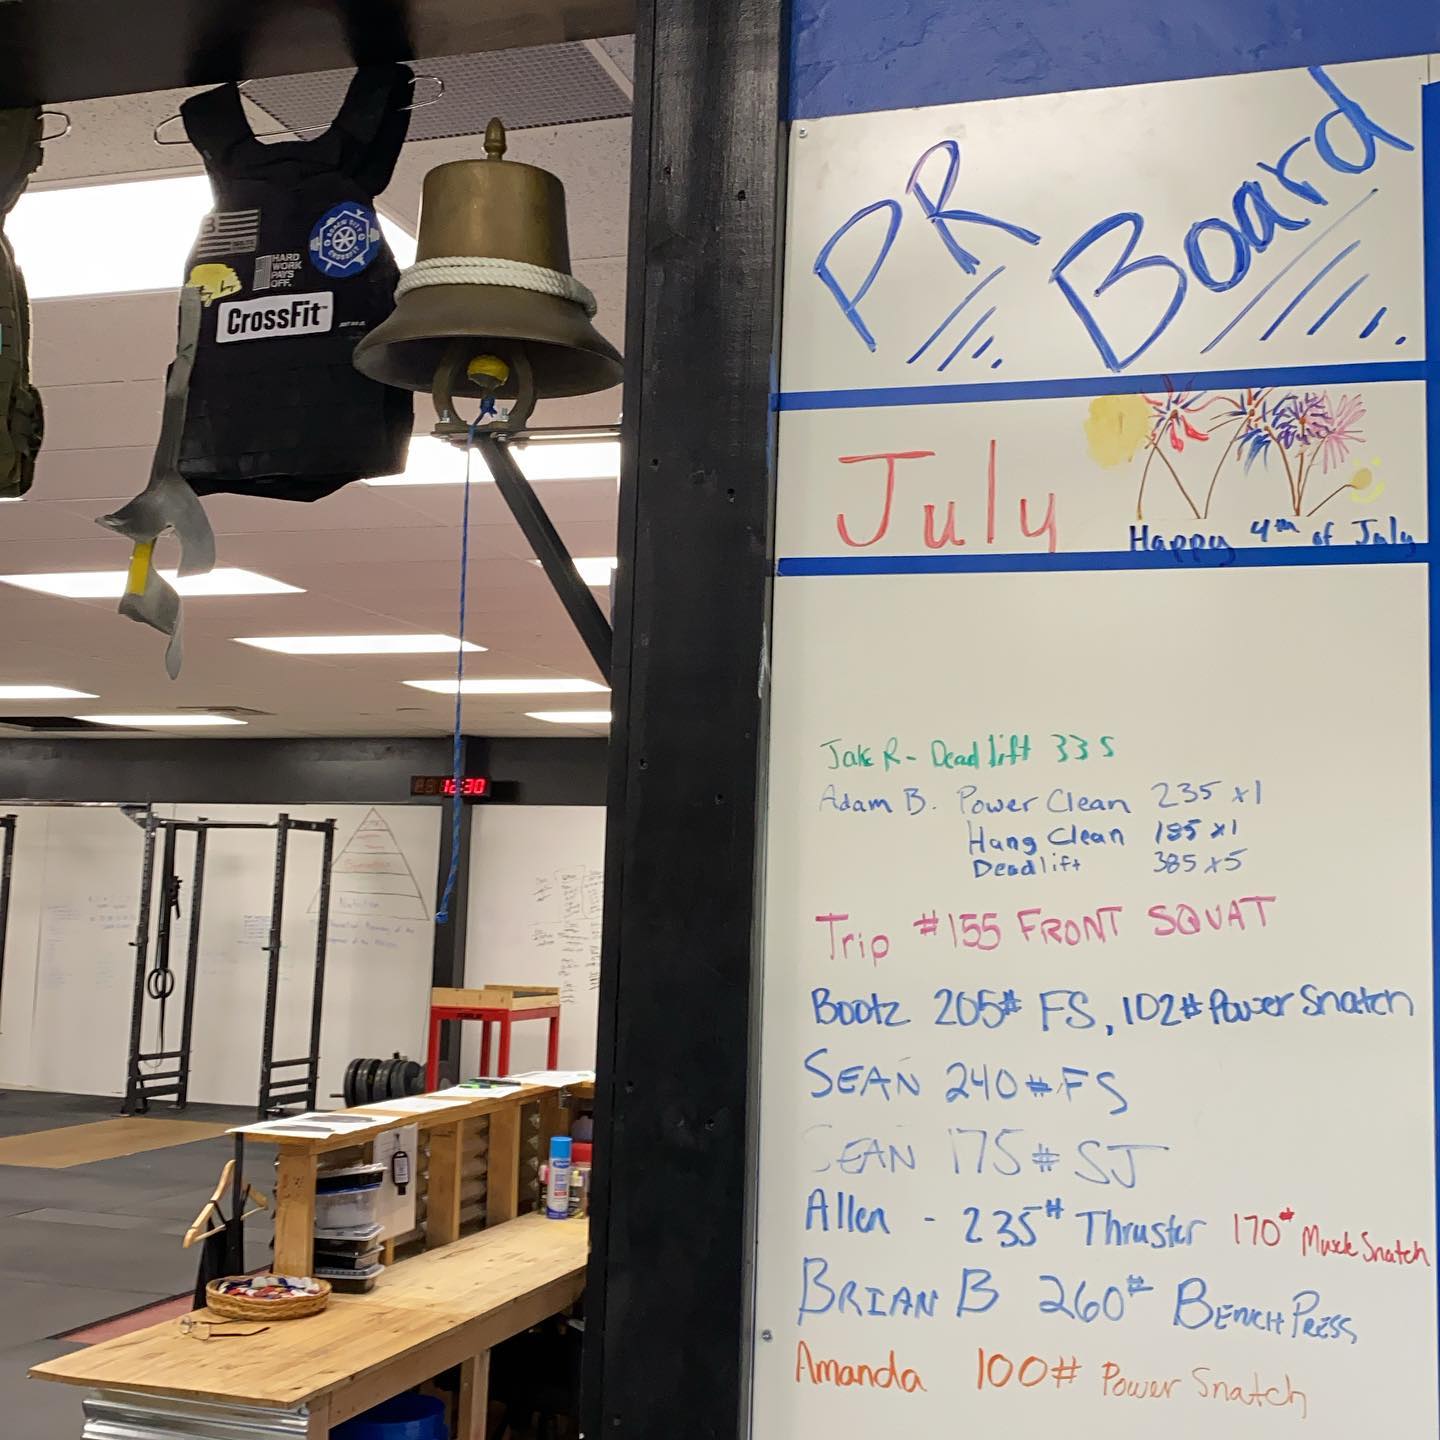 PR Board
July
Happy 4th of July
Jake R - Deadlift 335
Adam B. Power Clean 235 x 1
Hang Clean 185 x 1
Deadlift 385 x 5
Trip #155 FRONT SQUAT
Bootz 205# FS, 102# Power Snatch
SEAN 240# FS
SEAN 175# SJ
Allen - 235# Thruster 170# Muscle Snatch
BRIAN B 260# BENCH PRESS
Amanda 100# Power Snatch
HARD
WORK
PAYS
OFF.
CrossFit
CROSSFIT
12:30